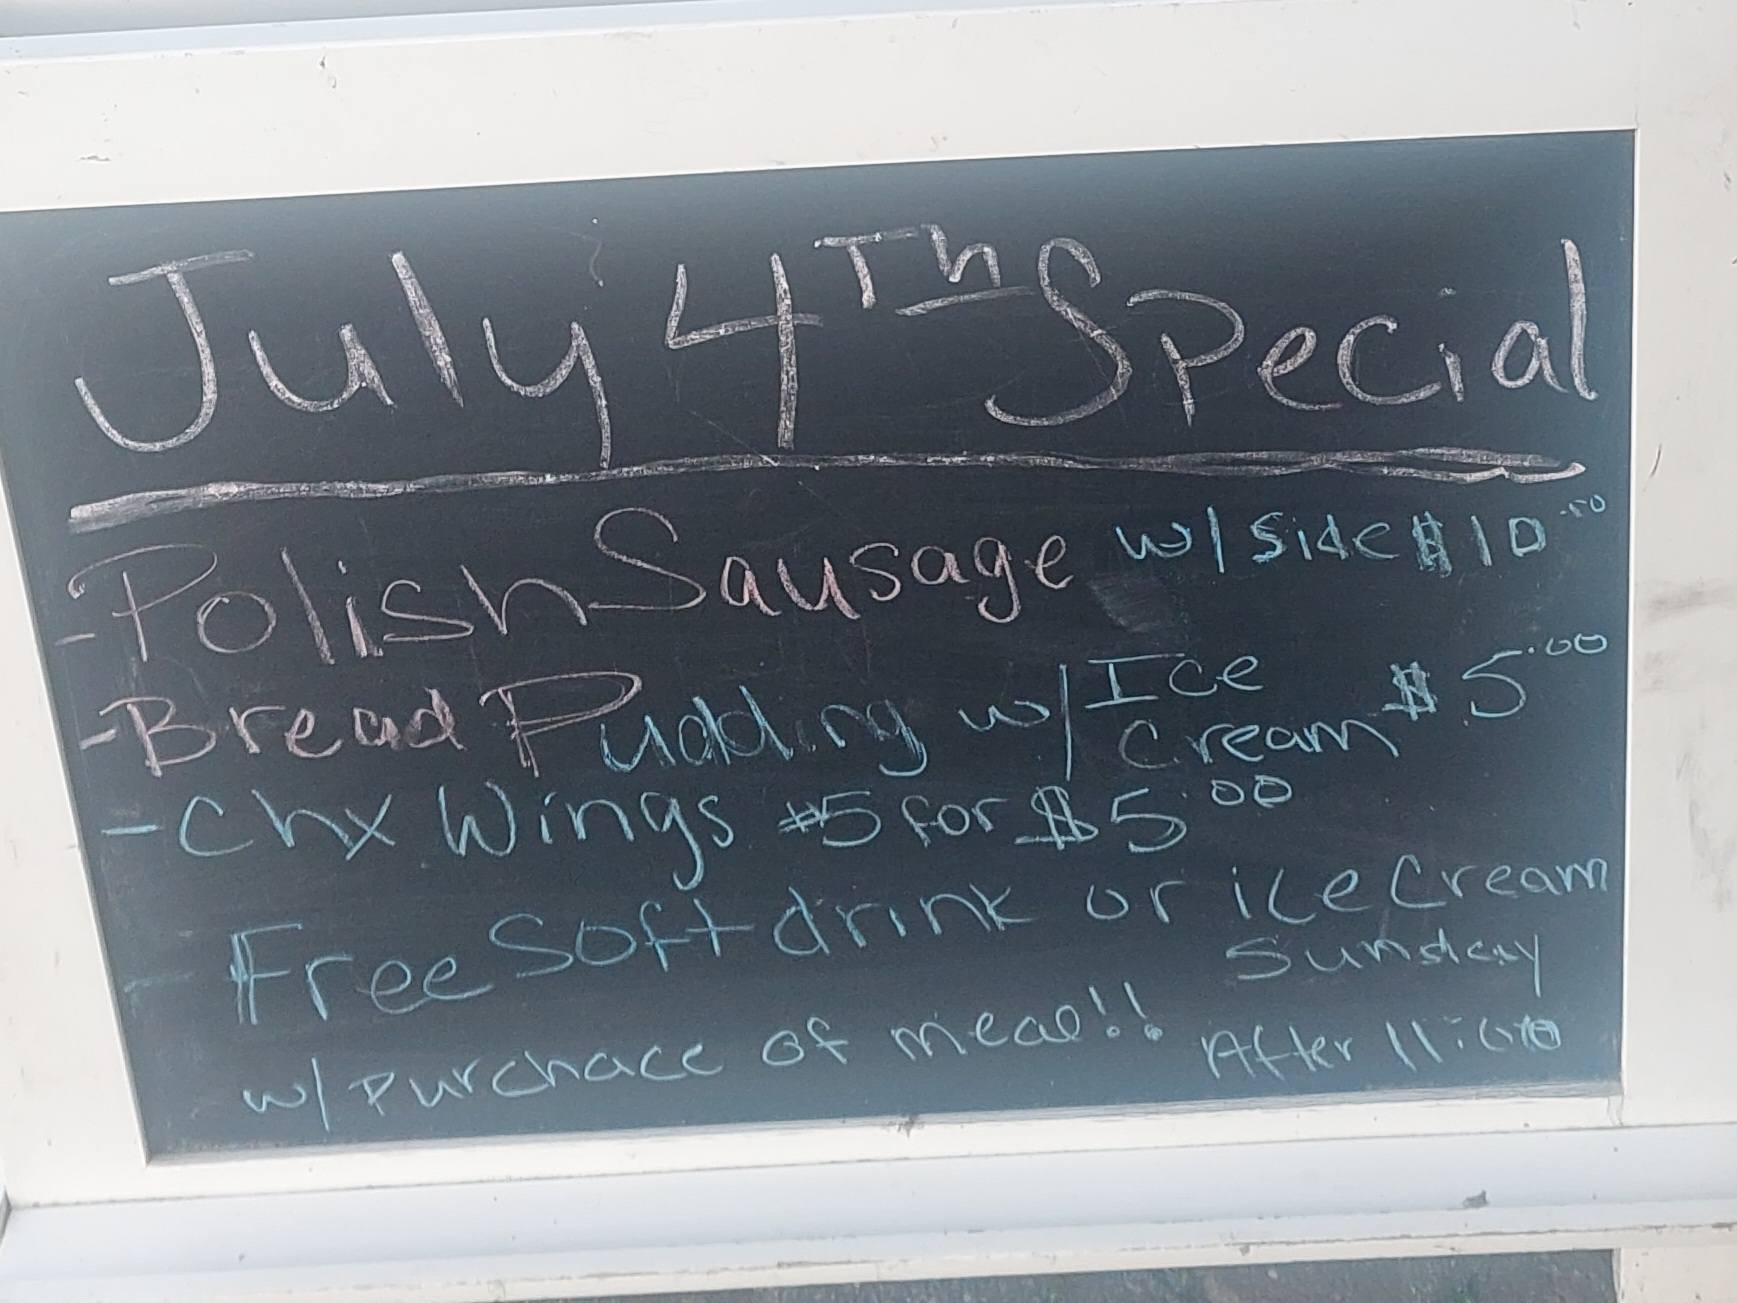 July 4Th Special
- Polish Sausage w/ Side $10.00
- Bread Pudding w/ Ice Cream $5.00
- Chx Wings #5 for $5.00
- Free Soft drink or ice Cream Sunday
w/ Purchace of meal!! After 11:00